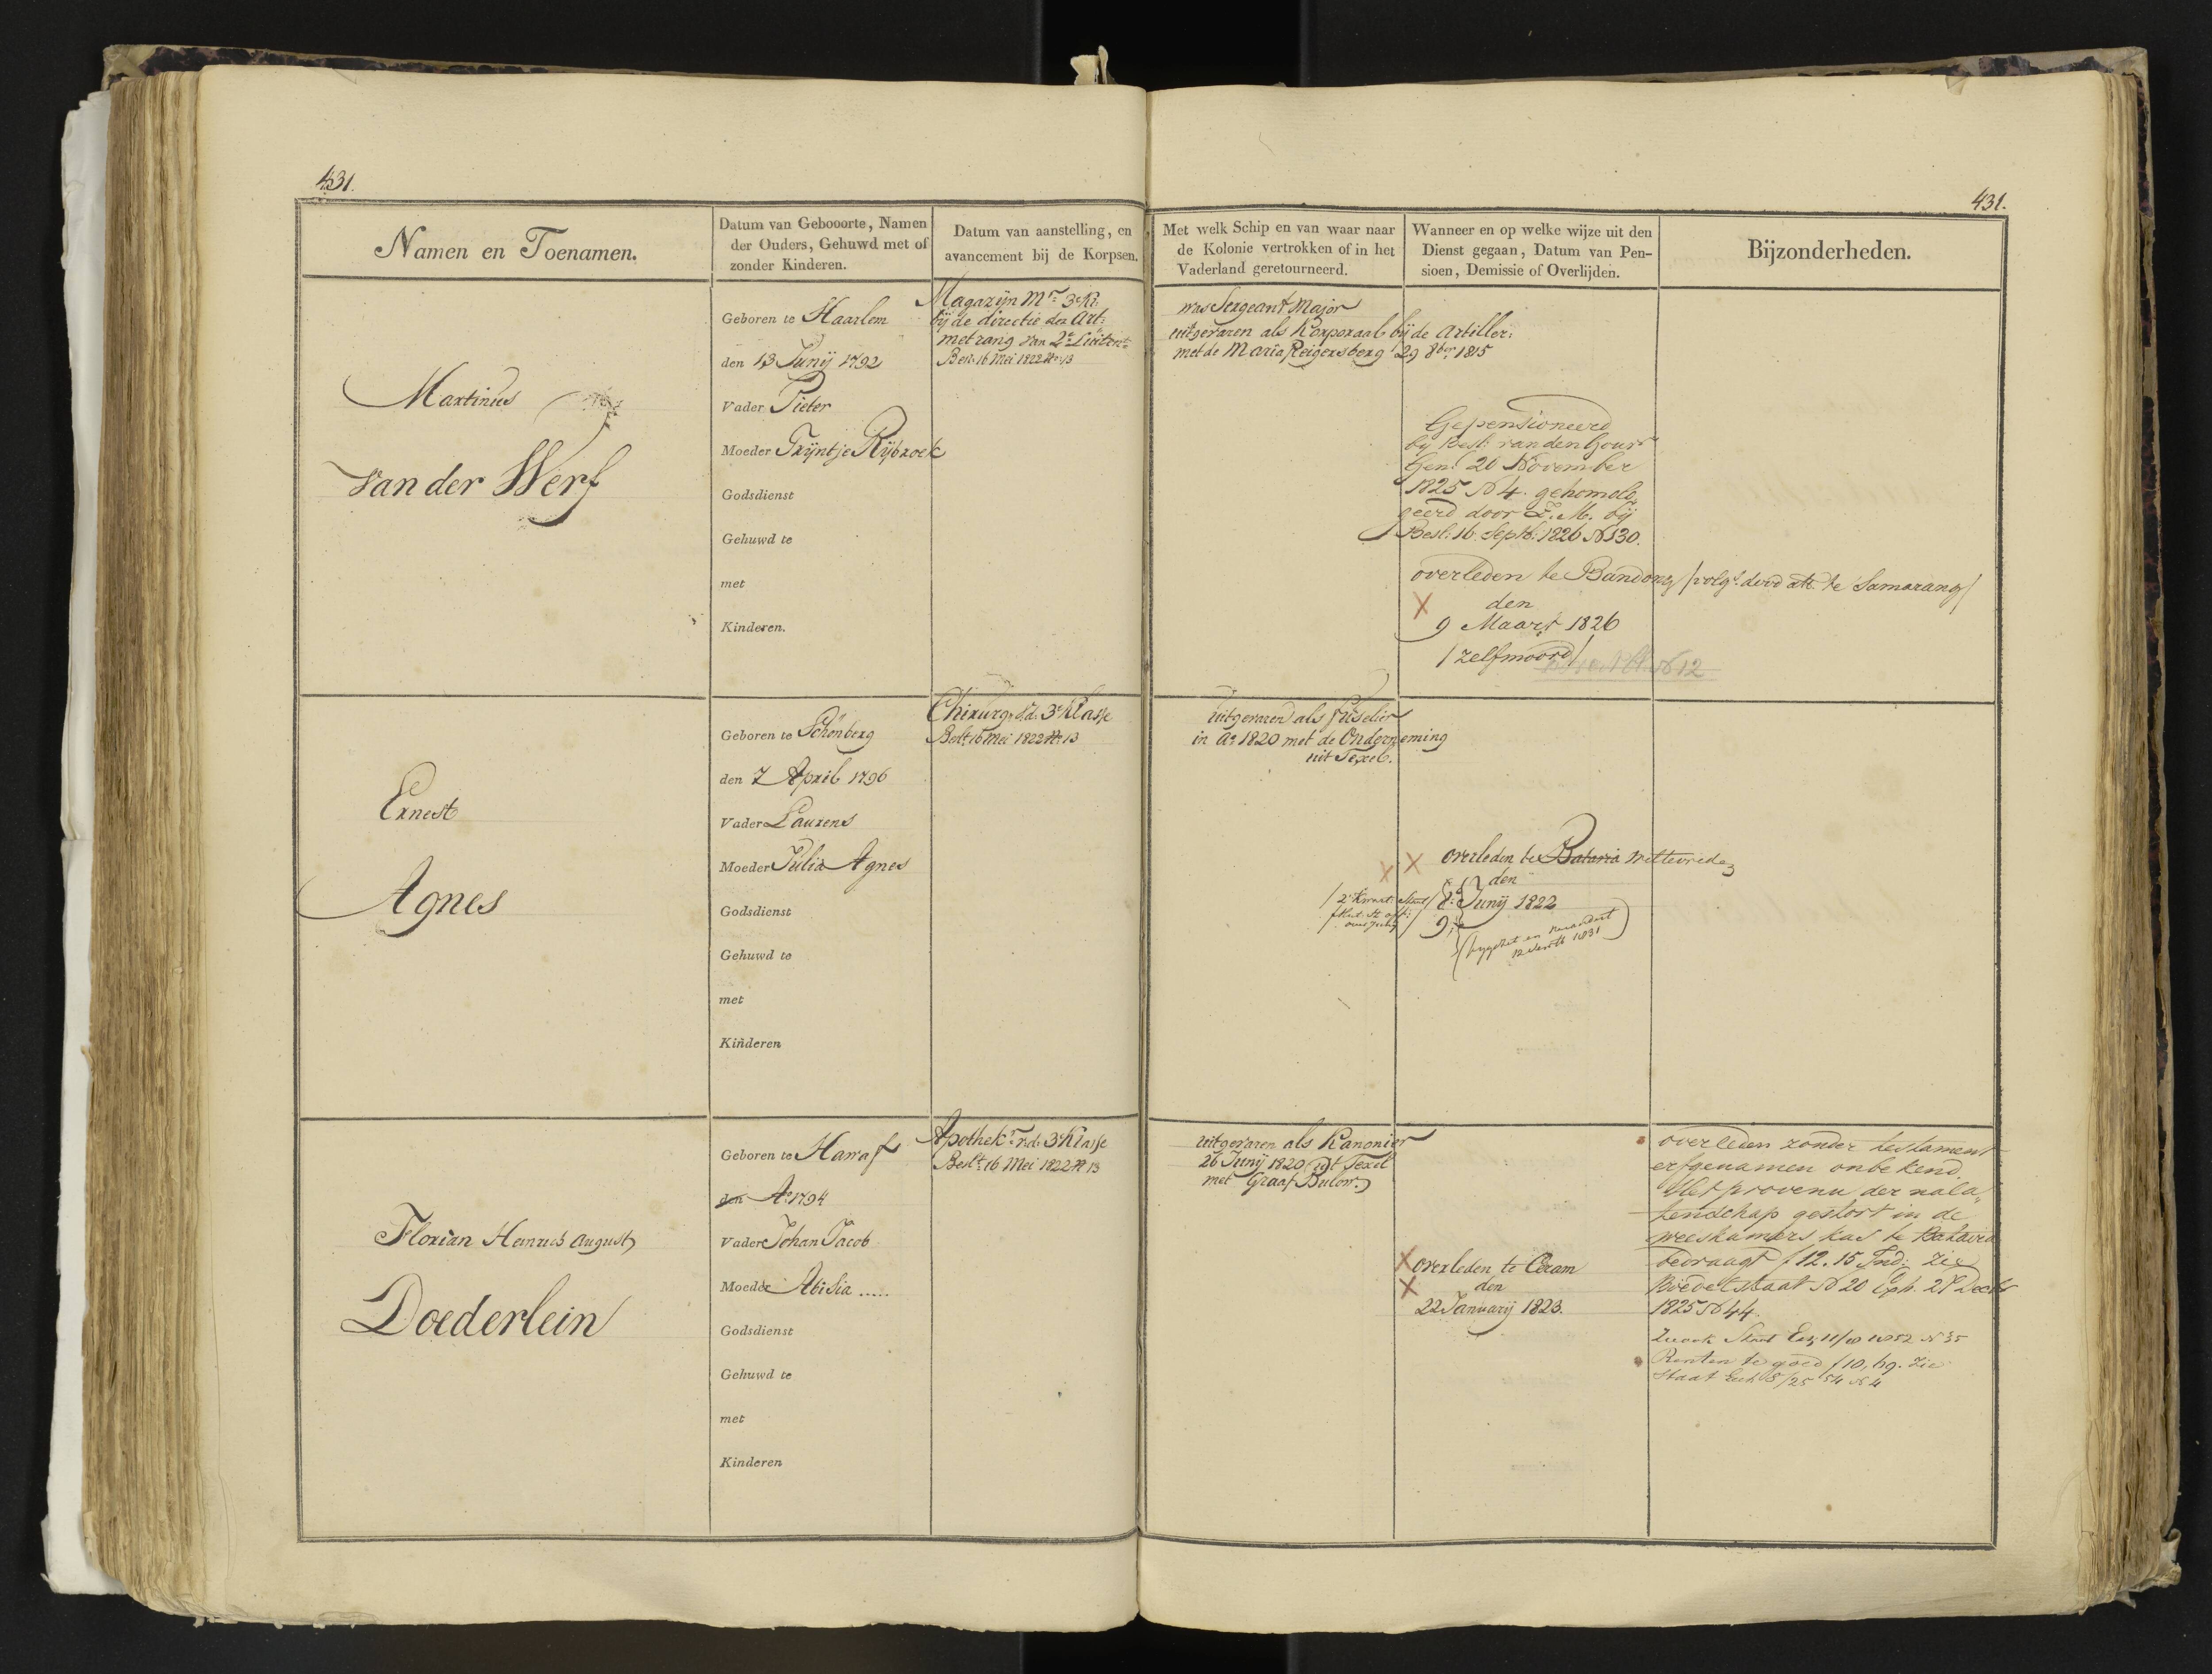 431.
431.
Namen en Toenamen.
Datum van Gebooorte, Namen
der Ouders, Gehuwd met of
zonder Kinderen.
Datum van aanstelling, en
avancement bij de Korpsen.
Met welk Schip en van waar naar
de Kolonie vertrokken of in het
Vaderland geretourneerd.
Wanneer en op welke wijze uit den
Dienst gegaan, Datum van Pen-
sioen, Demissie of Overlijden.
Bijzonderheden.
Martinus
Van der Werf
Geboren te Haarlem
den 13 Junij 1792
Vader Pieter
Moeder Trijntje Rijbroek
Godsdienst
Gehuwd te
met
Kinderen.
Magazijn Mr: 3e Kl:
bij de directie der Art:
met rang van 2e Luitent:
Beslt 16 Mei 1822 No 13
was Sergeant Major
uitgevaren als Korporaal bij de Artiller:
met de Maria Reigersberg 29 8ber 1815
Gepensioneerd
bij Besl: van den Gouvr
Genl 20 November
1825 No 4. gehomolo„
geerd door Z. M. bij
Besl: 16 Septb: 1826 No 130.
overleden te Bandong / volgs. dood att. te Samarang /
den
9 Maart 1826
/ zelfmoord /
No 12
Ernest
Agnes
Geboren te Schönberg
den 7 April 1796
Vader Laurens
Moeder Julia Agnes
Godsdienst
Gehuwd te
met
Kinderen
Chirurgn d. 3e Klasse
Beslt 16 Mei 1822 No 13
uitgevaren als fuselier
in Ao 1820 met de Onderneming
uit Texel.
overleden te Batavia Weltevreden
den
/ 2e Kwart: Staat / 8: Junij 1822
9:
Florian Heinrich August
Doederlein
Geboren te Hanaf
den Ao 1794
Vader Johan Jacob
Moeder Abisia .....
Godsdienst
Gehuwd te
met
Kinderen
Apothekr: v.d. 3e Klasse
Beslt 16 Mei 1822 No 13
uitgevaren als Kanonier
26 Junij 1820 uit Texel
met Graaf Bulow.
overleden te Ceram
den
22 Januarij 1823.
overleden zonder testament
erfgenamen onbekend.
Het provenu der nala„
tenschap gestort in de
weeskamers kas te Batavia
bedraagt f 12.15 Ind: zie
Boedelstaat No 20 Exh. 27 Decbr
1825 No 44.
Staat Exh 11/10 1852 No 35
Renten te goed f 10,69. Zie
Staat Exh 8/25 54 No 4